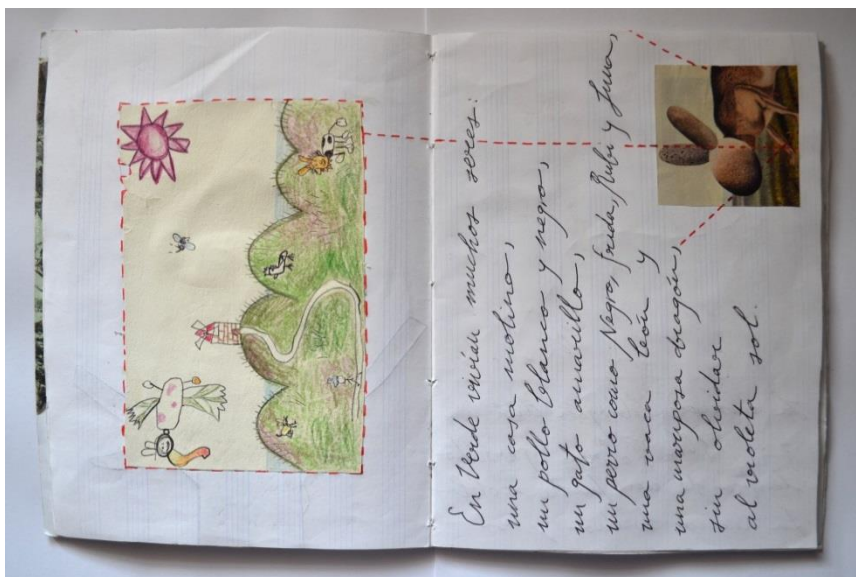 En Verde vivían muchos seres:
una casa molino,
un pollo blanco y negro,
un gato amarillo,
un perro como Negro, Frida, Rubi y Juna,
una vaca león y
una mariposa dragón,
sin olvidar
al violeta sol.